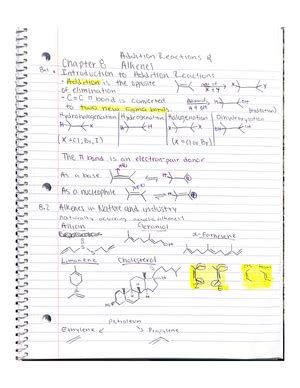 Addition Reactions of
Chapter 8 Alkenes
8.1 Introduction to Addition Reactions
- Addition is the opposite
of elimination
- C=C π bond is converted
to two new sigma bonds
Hydrohalogenation Hydrogenation Halogenation Dihydroxylation
(X = Cl, Br, I) (X = Cl or Br)
The π bond is an electron-pair donor
As a base
As a nucleophile
8.2 Alkenes in Nature and Industry
naturally occuring
Allicin Geraniol α-Farnesene
Limonene Cholesterol
Petroleum
Ethylene Propylene